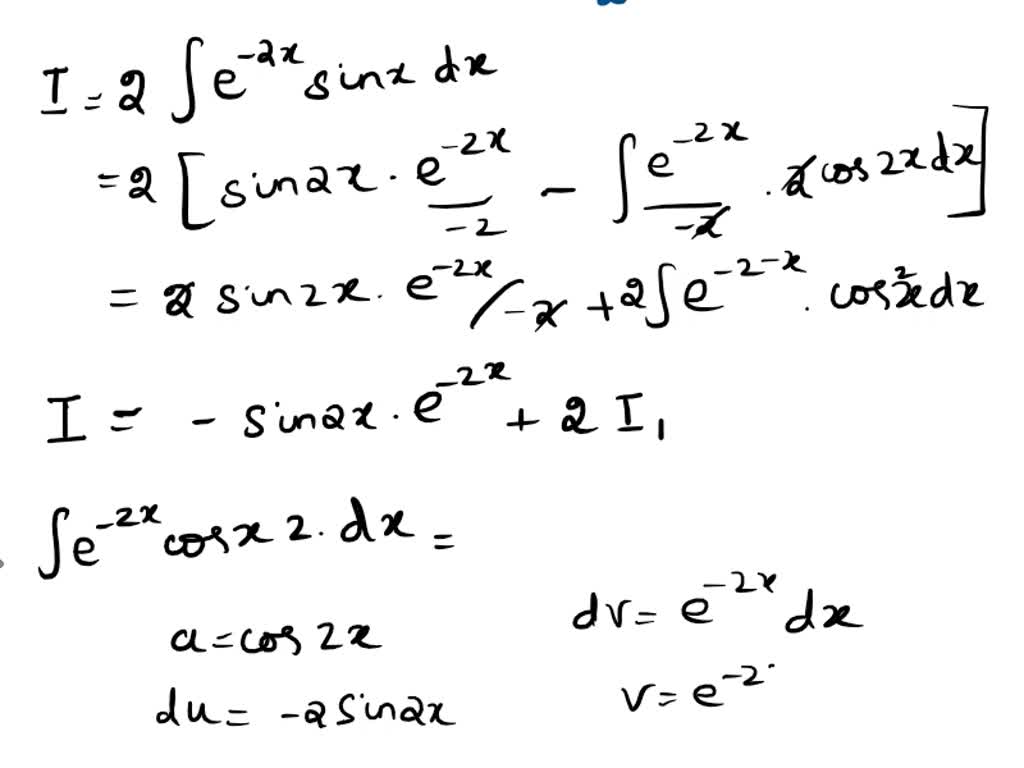 I = 2 ∫ e^{-2x} sinx dx
= 2 [ sin2x · e^{-2x}/-2 - ∫ e^{-2x}/-2 · 2cos2x dx ]
= 2 sin2x · e^{-2x}/-2 + 2∫ e^{-2-x} · cos2x dx
I = - sin2x · e^{-2x} + 2 I₁
∫e^{-2x} cosx 2 · dx =
u = cos 2x    dv = e^{-2x} dx
du = -2 sin2x    v = e^{-2